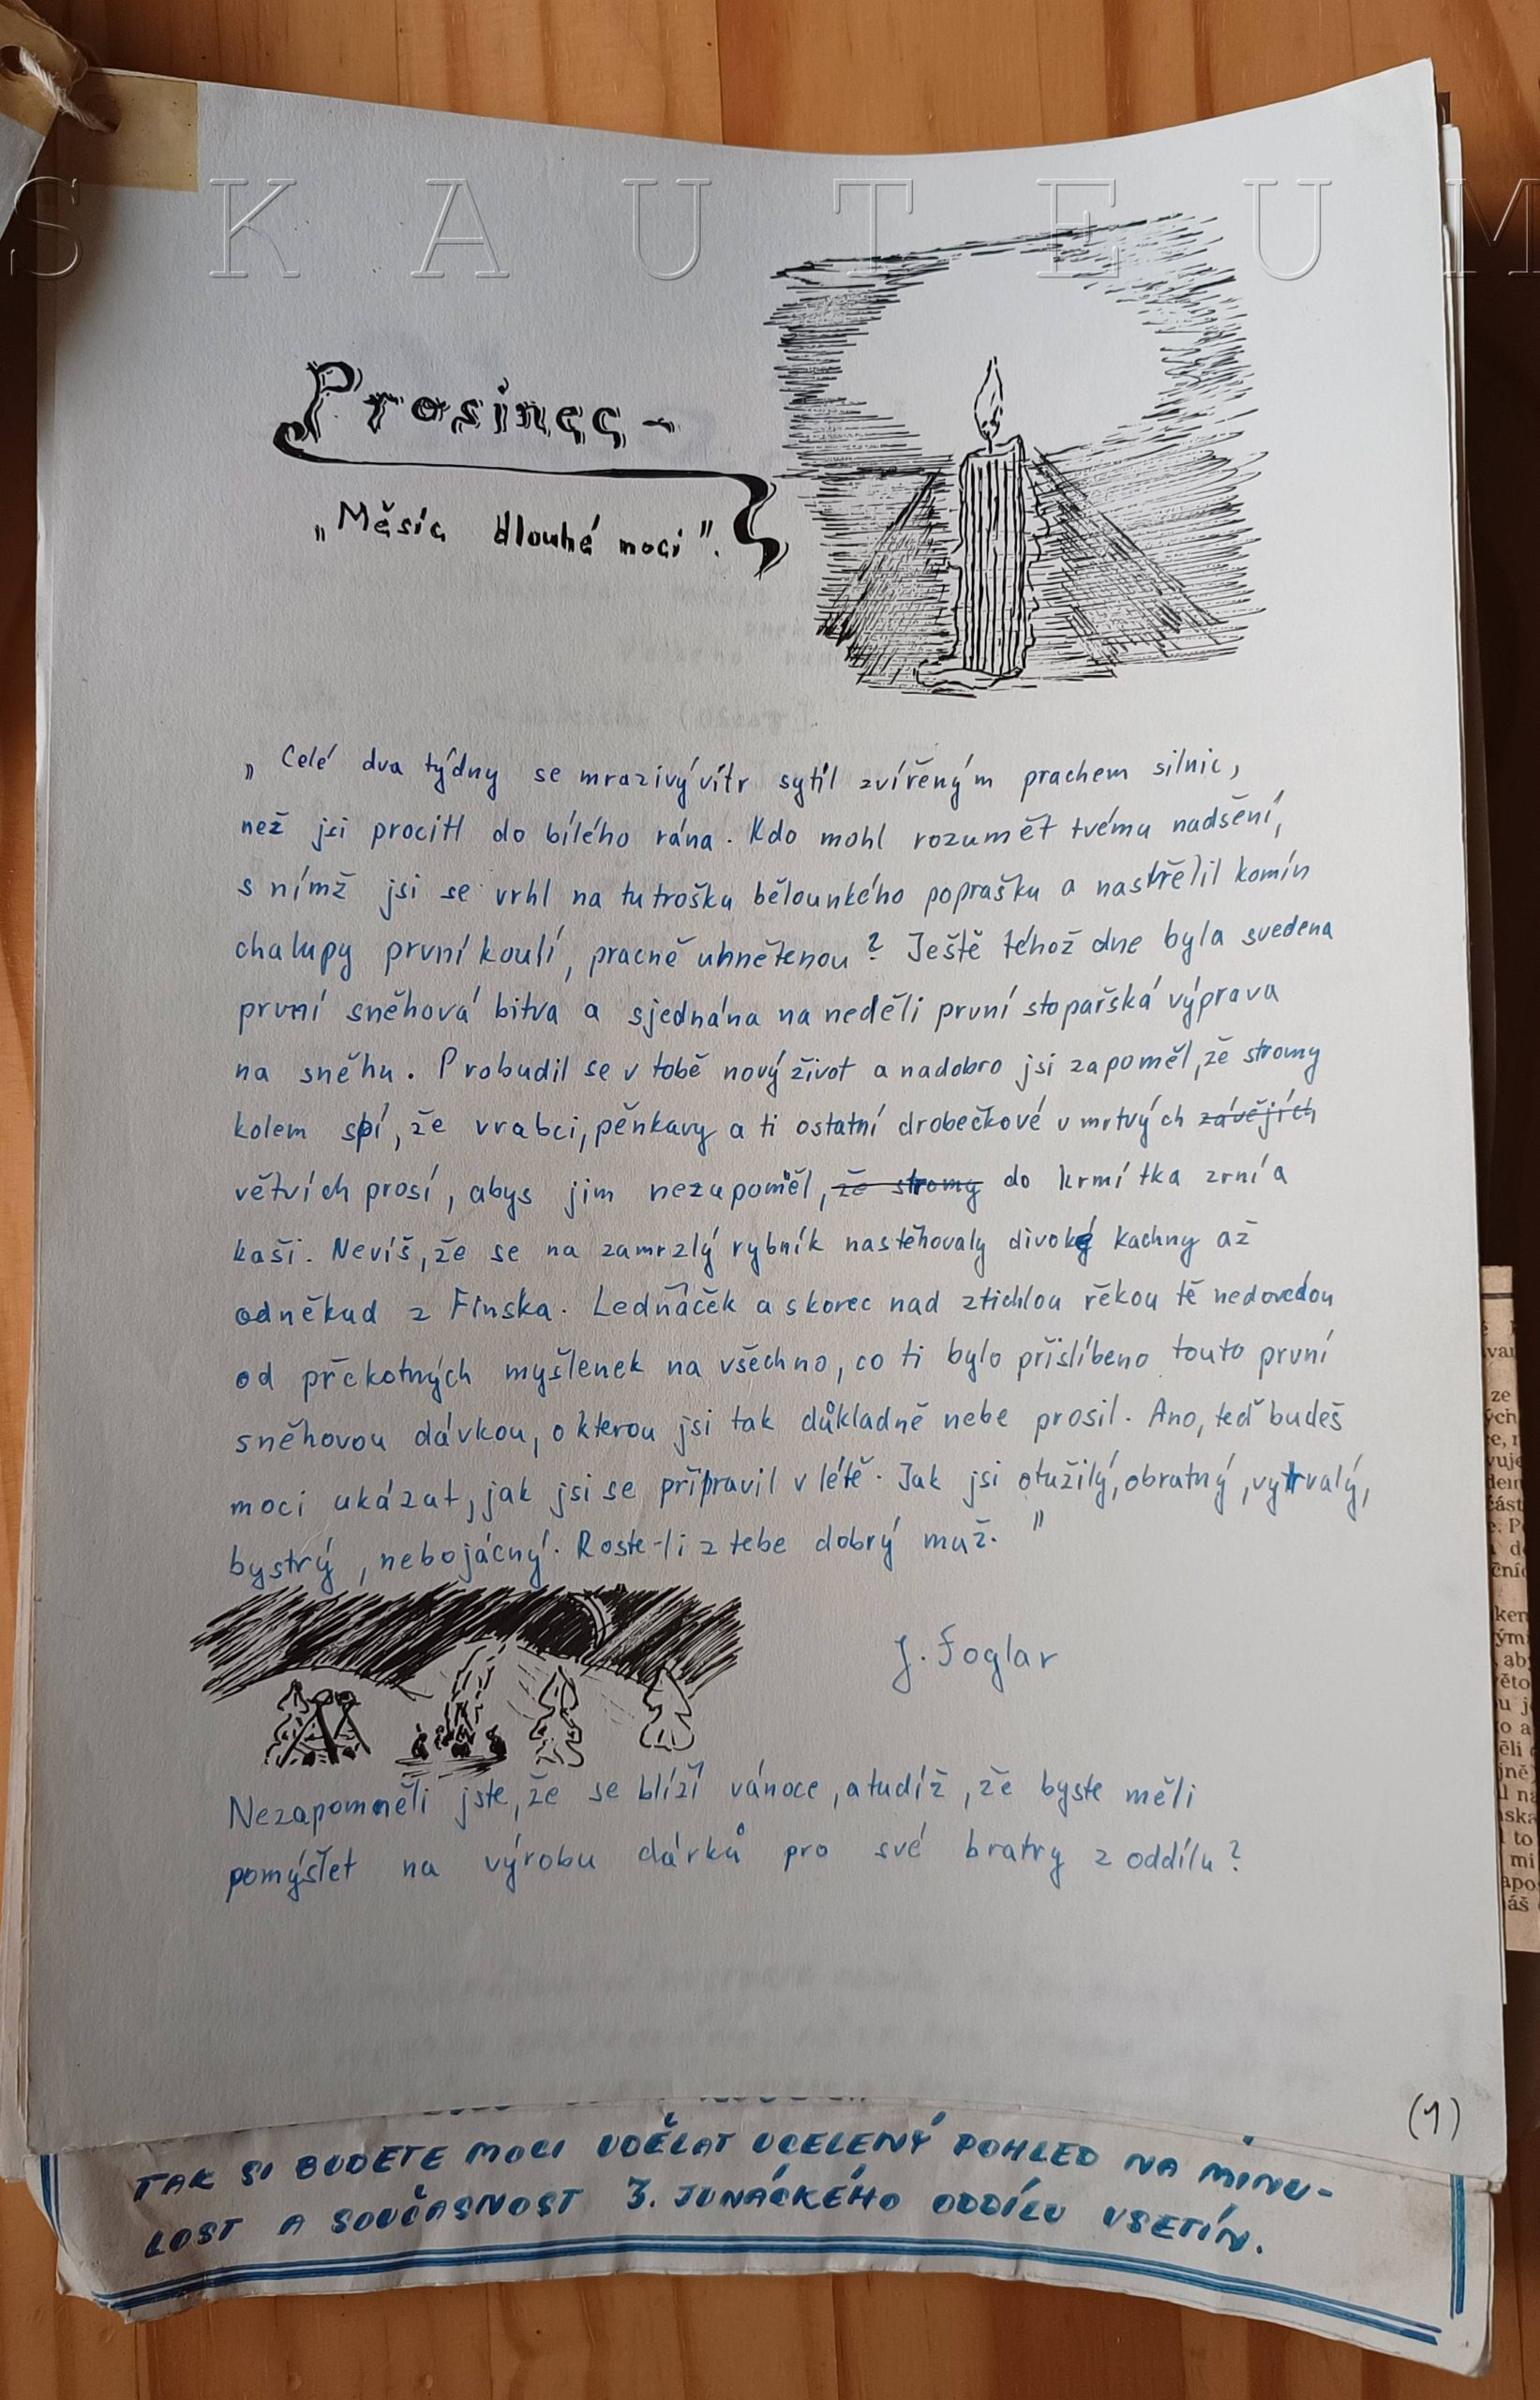 SKAUTEUM
Prosinec -
„Měsíc dlouhé noci".
„Celé dva týdny se mrazivý vítr sytil zvířeným prachem silnic,
než jsi procitl do bílého rána. Kdo mohl rozumět tvému nadšení,
s nímž jsi se vrhl na tu trošku bělounkého poprašku a nastřelil komín
chalupy první koulí, pracně uhnětenou? Ještě téhož dne byla svedena
první sněhová bitva a sjednána na neděli první stopařská výprava
na sněhu. Probudil se v tobě nový život a nadobro jsi zapoměl, že stromy
kolem spí, že vrabci, pěnkavy a ti ostatní drobečkové v mrtvých závějích
větvích prosí, abys jim nezapoměl, že stromy do krmítka zrní a
kaši. Nevíš, že se na zamrzlý rybník nastěhovaly divoké kachny až
odněkud z Finska. Ledňáček a skorec nad ztichlou řekou tě nedovedou
od překotných myšlenek na všechno, co ti bylo přislíbeno touto první
sněhovou dávkou, o kterou jsi tak důkladně nebe prosil. Ano, teď budeš
moci ukázat, jak jsi se připravil v létě. Jak jsi otužilý, obratný, vytrvalý,
bystrý, nebojácný. Roste-li z tebe dobrý muž."
J. Foglar
Nezapomněli jste, že se blíží vánoce, a tudíž, že byste měli
pomýšlet na výrobu dárků pro své bratry z oddílu?
(1)
TAK SI BUDETE MOCI UDĚLAT UCELENÝ POHLED NA MINU-
LOST A SOUČASNOST 3. JUNÁCKÉHO ODDÍLU VSETÍN.